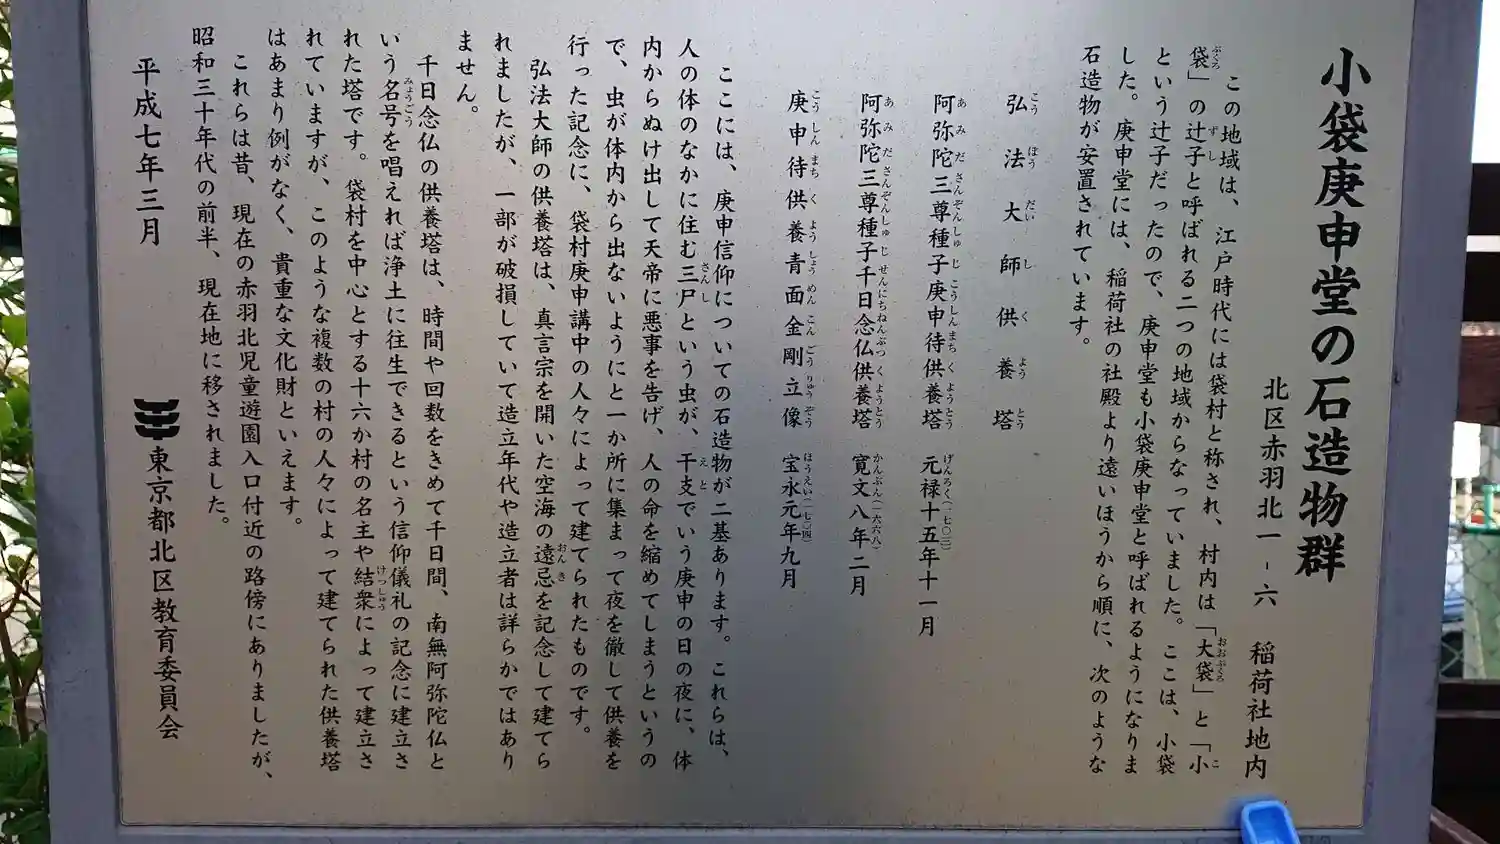 小袋庚申堂の石造物群
北区赤羽北一-六 稲荷社地内
この地域は、江戸時代には袋村と称され、村内は「大袋」と「小
袋」の辻子と呼ばれる二つの地域からなっていました。ここは、小袋
という辻子だったので、庚申堂も小袋庚申堂と呼ばれるようになりま
した。庚申堂には、稲荷社の社殿より遠いほうから順に、次のような
石造物が安置されています。
弘法大師供養塔
阿弥陀三尊種子庚申待供養塔 元禄十五年(一七〇二)十一月
阿弥陀三尊種子千日念仏供養塔 寛文八年(一六六八)二月
庚申待供養青面金剛立像 宝永元年(一七〇四)九月
ここには、庚申信仰についての石造物が二基あります。これらは、
人の体のなかに住む三尸という虫が、干支でいう庚申の日の夜に、体
内からぬけ出して天帝に悪事を告げ、人の命を縮めてしまうというの
で、虫が体内から出ないようにと一か所に集まって夜を徹して供養を
行った記念に、袋村庚申講中の人々によって建てられたものです。
弘法大師の供養塔は、真言宗を開いた空海の遠忌を記念して建てら
れましたが、一部が破損していて造立年代や造立者は詳らかではあり
ません。
千日念仏の供養塔は、時間や回数をきめて千日間、南無阿弥陀仏と
いう名号を唱えれば浄土に往生できるという信仰儀礼の記念に建立さ
れた塔です。袋村を中心とする十六か村の名主や結衆によって建立さ
れていますが、このような複数の村の人々によって建てられた供養塔
はあまり例がなく、貴重な文化財といえます。
これらは昔、現在の赤羽北児童遊園入口付近の路傍にありましたが、
昭和三十年代の前半、現在地に移されました。
平成七年三月
東京都北区教育委員会